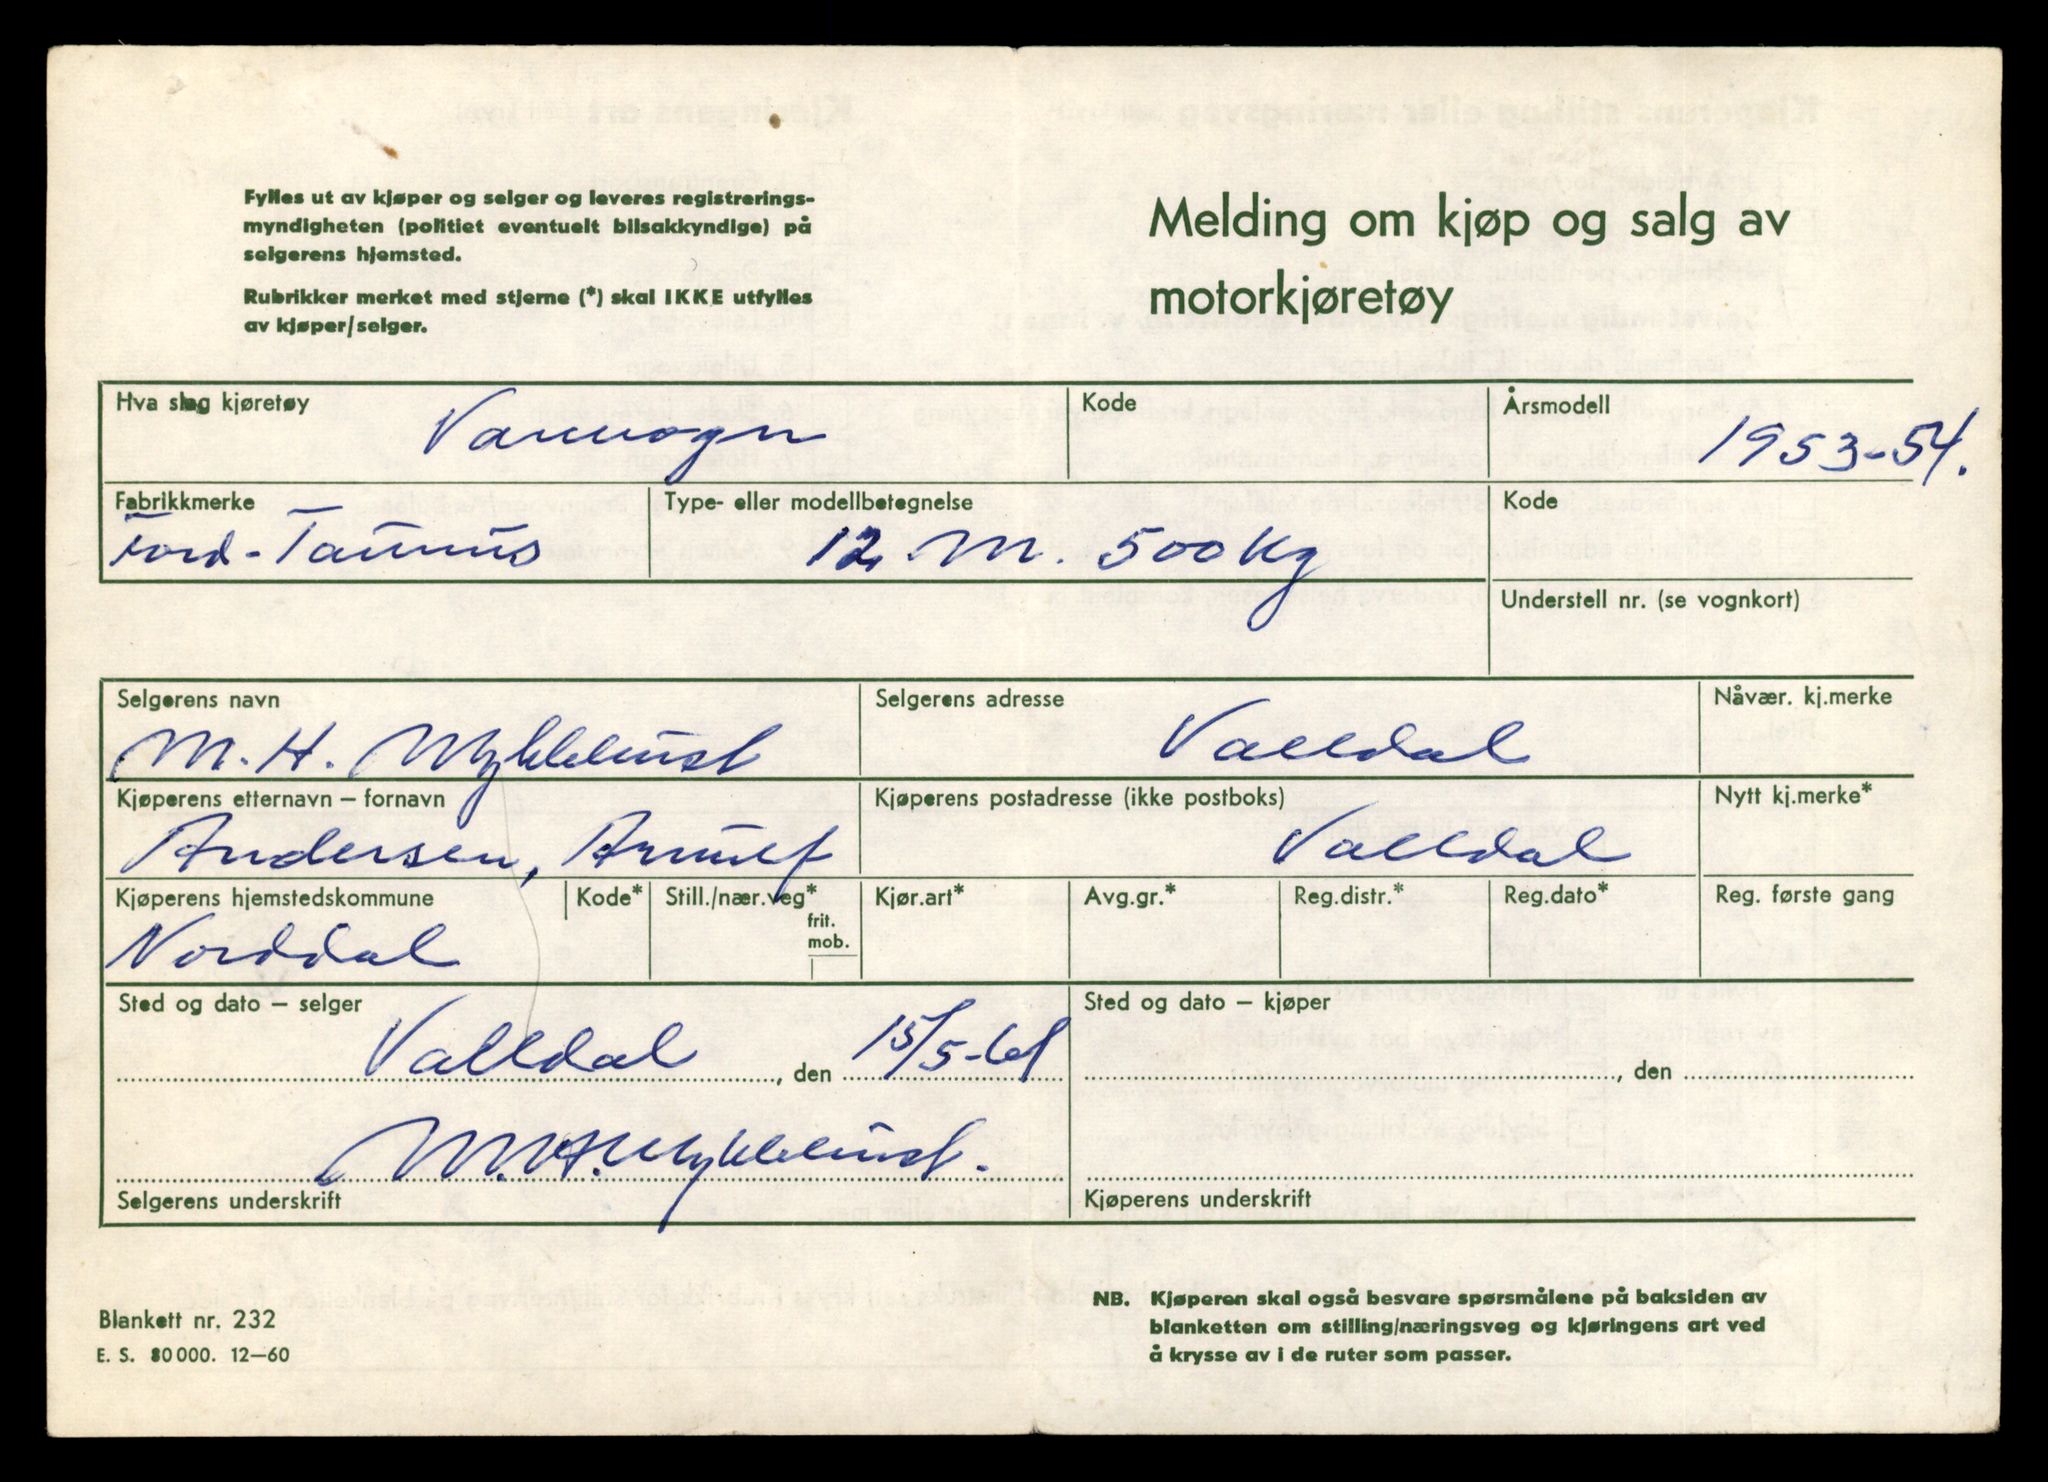 Fylles ut av kjøper og selger og leveres registrerings-
myndigheten (politiet eventuelt bilsakkyndige) på
selgerens hjemsted.
Rubrikker merket med stjerne (*) skal IKKE utfylles
av kjøper/selger.
Melding om kjøp og salg av
motorkjøretøy
Hva slag kjøretøy
Varevogn
Kode
Årsmodell
1953-54.
Fabrikkmerke
Ford-Taunus
Type- eller modellbetegnelse
12 M. 500 kg
Kode
Understell nr. (se vognkort)
Selgerens navn
M. H. Myklebust
Selgerens adresse
Valldal
Nåvær. kj.merke
Kjøperens etternavn – fornavn
Andersen, Arnulf
Kjøperens postadresse (ikke postboks)
Valldal
Nytt kj.merke*
Kjøperens hjemstedskommune
Norddal
Kode*
Still./nær.veg*
frit.
mob.
Kjør.art*
Avg.gr.*
Reg.distr.*
Reg.dato*
Reg. første gang
Sted og dato – selger
Valldal, den 15/5-61
M. H. Myklebust.
Selgerens underskrift
Sted og dato – kjøper
, den
Kjøperens underskrift
Blankett nr. 232
E. S. 80 000. 12–60
NB. Kjøperen skal også besvare spørsmålene på baksiden av
blanketten om stilling/næringsveg og kjøringens art ved
å krysse av i de ruter som passer.